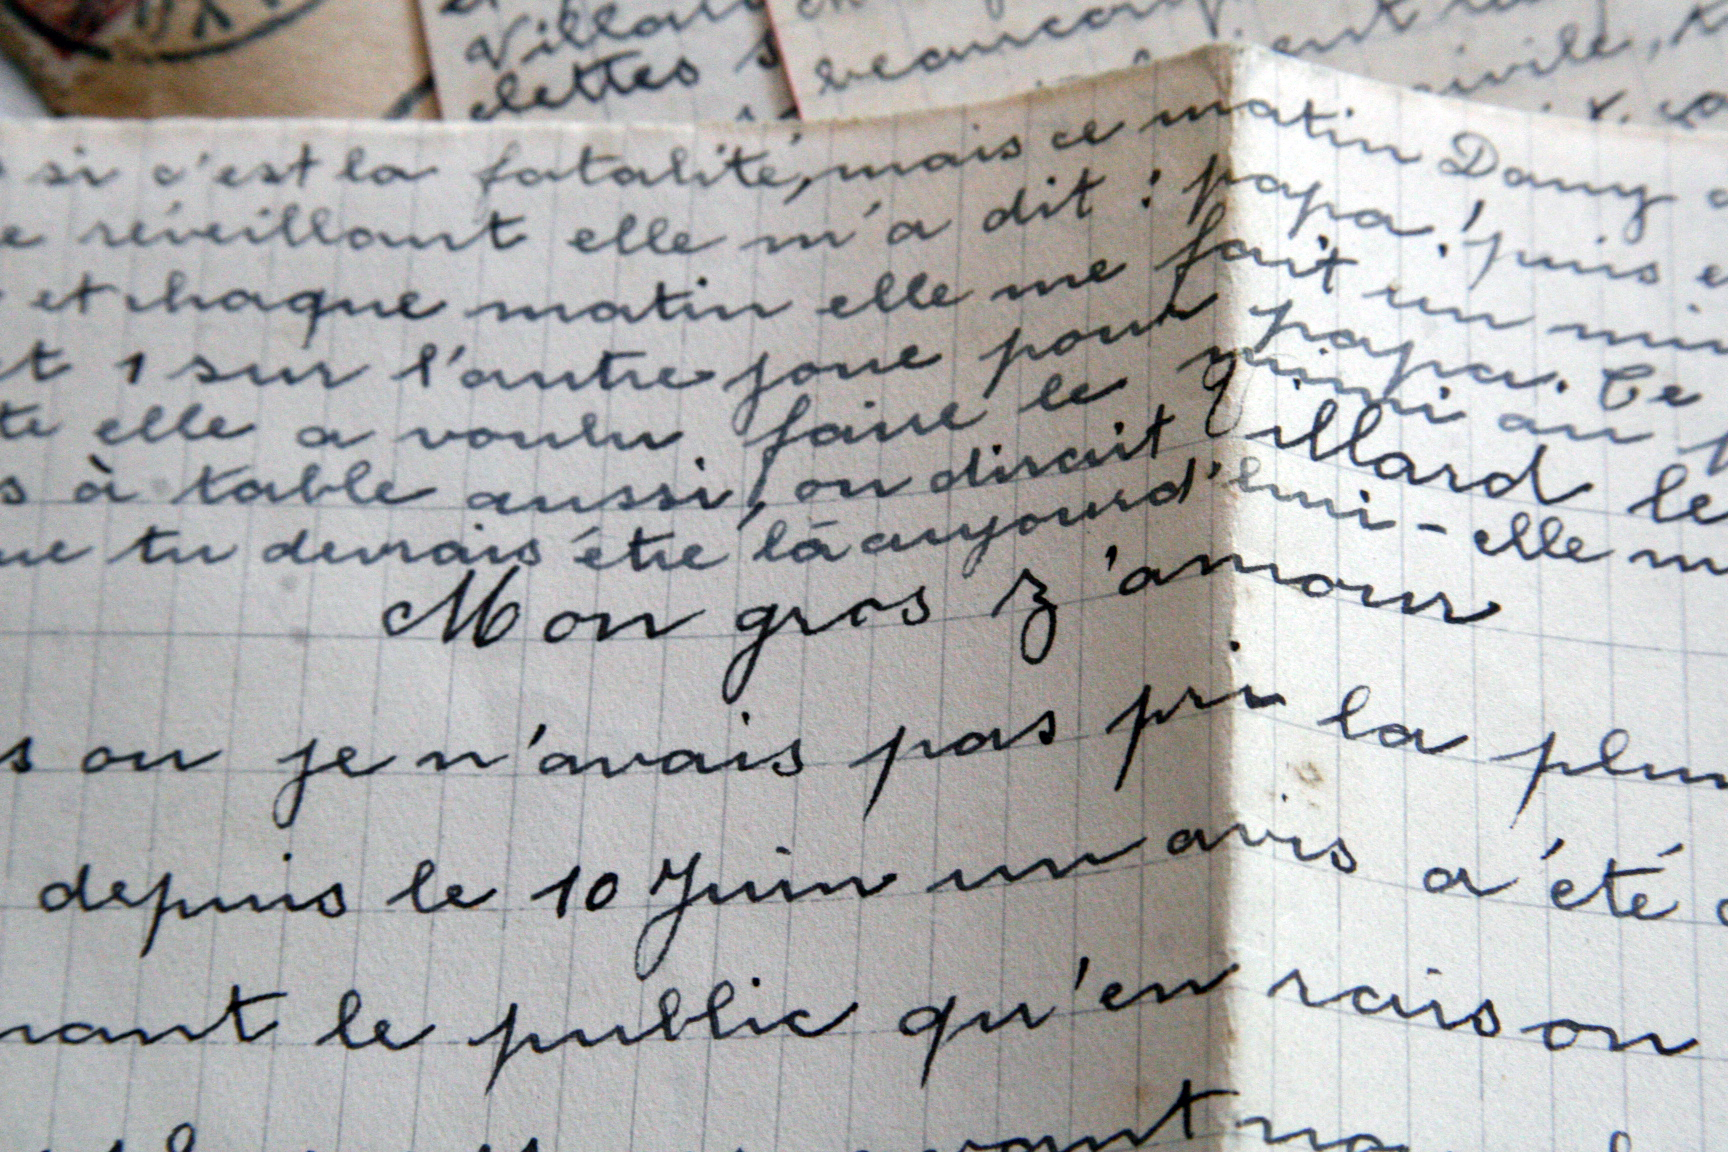 Villard
lettes s
beaucoup
ient
civile,
si c'est la fatalité, mais ce matin Dany
réveillant elle m'a dit : papa ! puis
et chaque matin elle me fait un mi
et 1 sur l'autre joue pour papa. Ce
te elle a voulu faire le mimi au
s à table aussi, on dirait qu
illard le
ue tu devrais être là aujourd'hui - elle m
Mon gros z'amour
s ou je n'avais pas pri la plu
depuis le 10 Juin un avis a été
nant le public qu'en raison